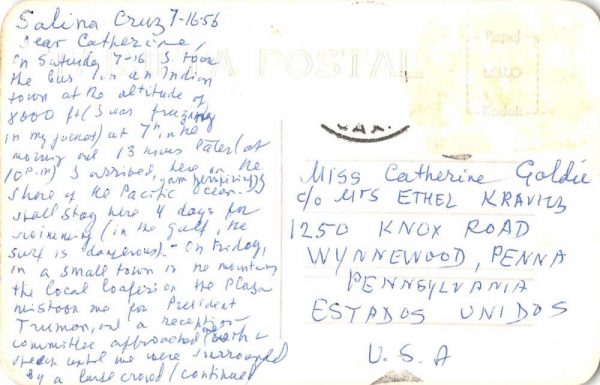 Salina Cruz 7-16-56
Dear Catherine,
On Saturday 7-16 I took
the bus in an Indian
town at the altitude of
8000 ft (I was freezing
in my jacket) at 7h in the
morning and 13 hours later (at
10 p.m) I arrived, here on the
shore of the Pacific Ocean. I
am perspiring
shall stay here 4 days for
swimming (in the gulf, the
surf is dangerous).- On Friday,
in a small town in the mountains
the local loafers on the Plaza
mistook me for President
Truman, and a reception
committee approached with a
speech until we were surrounded
by a large crowd (continued
TARJETA POSTAL
Papel
SELLO
Kodak
MEX.
Miss Catherine Goldie
c/o Mrs ETHEL KRAVITZ
1250 KNOX ROAD
WYNNEWOOD, PENNA
PENNSYLVANIA
ESTADOS UNIDOS
U.S.A